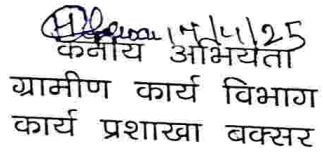 17/4/25
कनीय अभियंता
ग्रामीण कार्य विभाग
कार्य प्रशाखा बक्सर